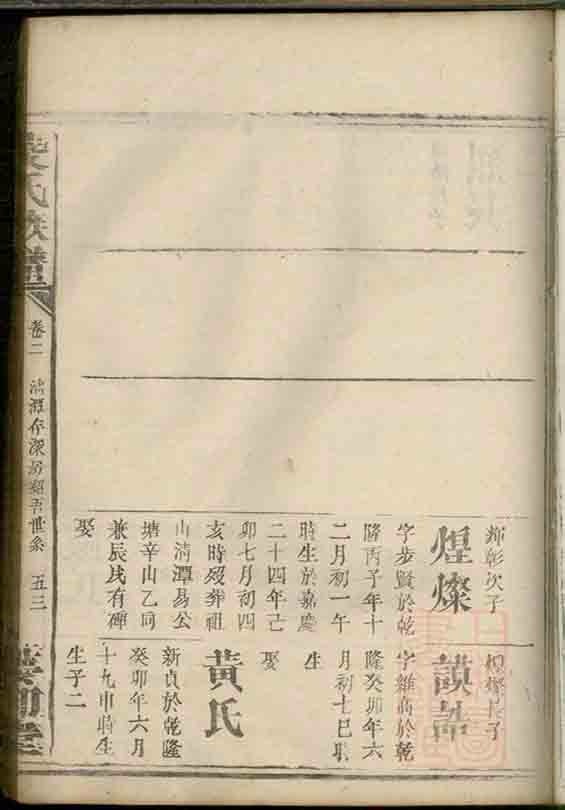 輝彰次子
煌燦
字步賢於乾
隆丙子年十
二月初一午
時生於嘉慶
二十四年己
卯七月初四
亥時歿葬祖
山清潭易公
塘辛山乙向
兼辰戌有碑
娶
煌燦長子
字維高於乾
隆癸卯年六
月初十巳時
生
娶
黃氏
新貞於乾隆
癸卯年六月
十九申時生
生子二
氏族譜
卷二
五三